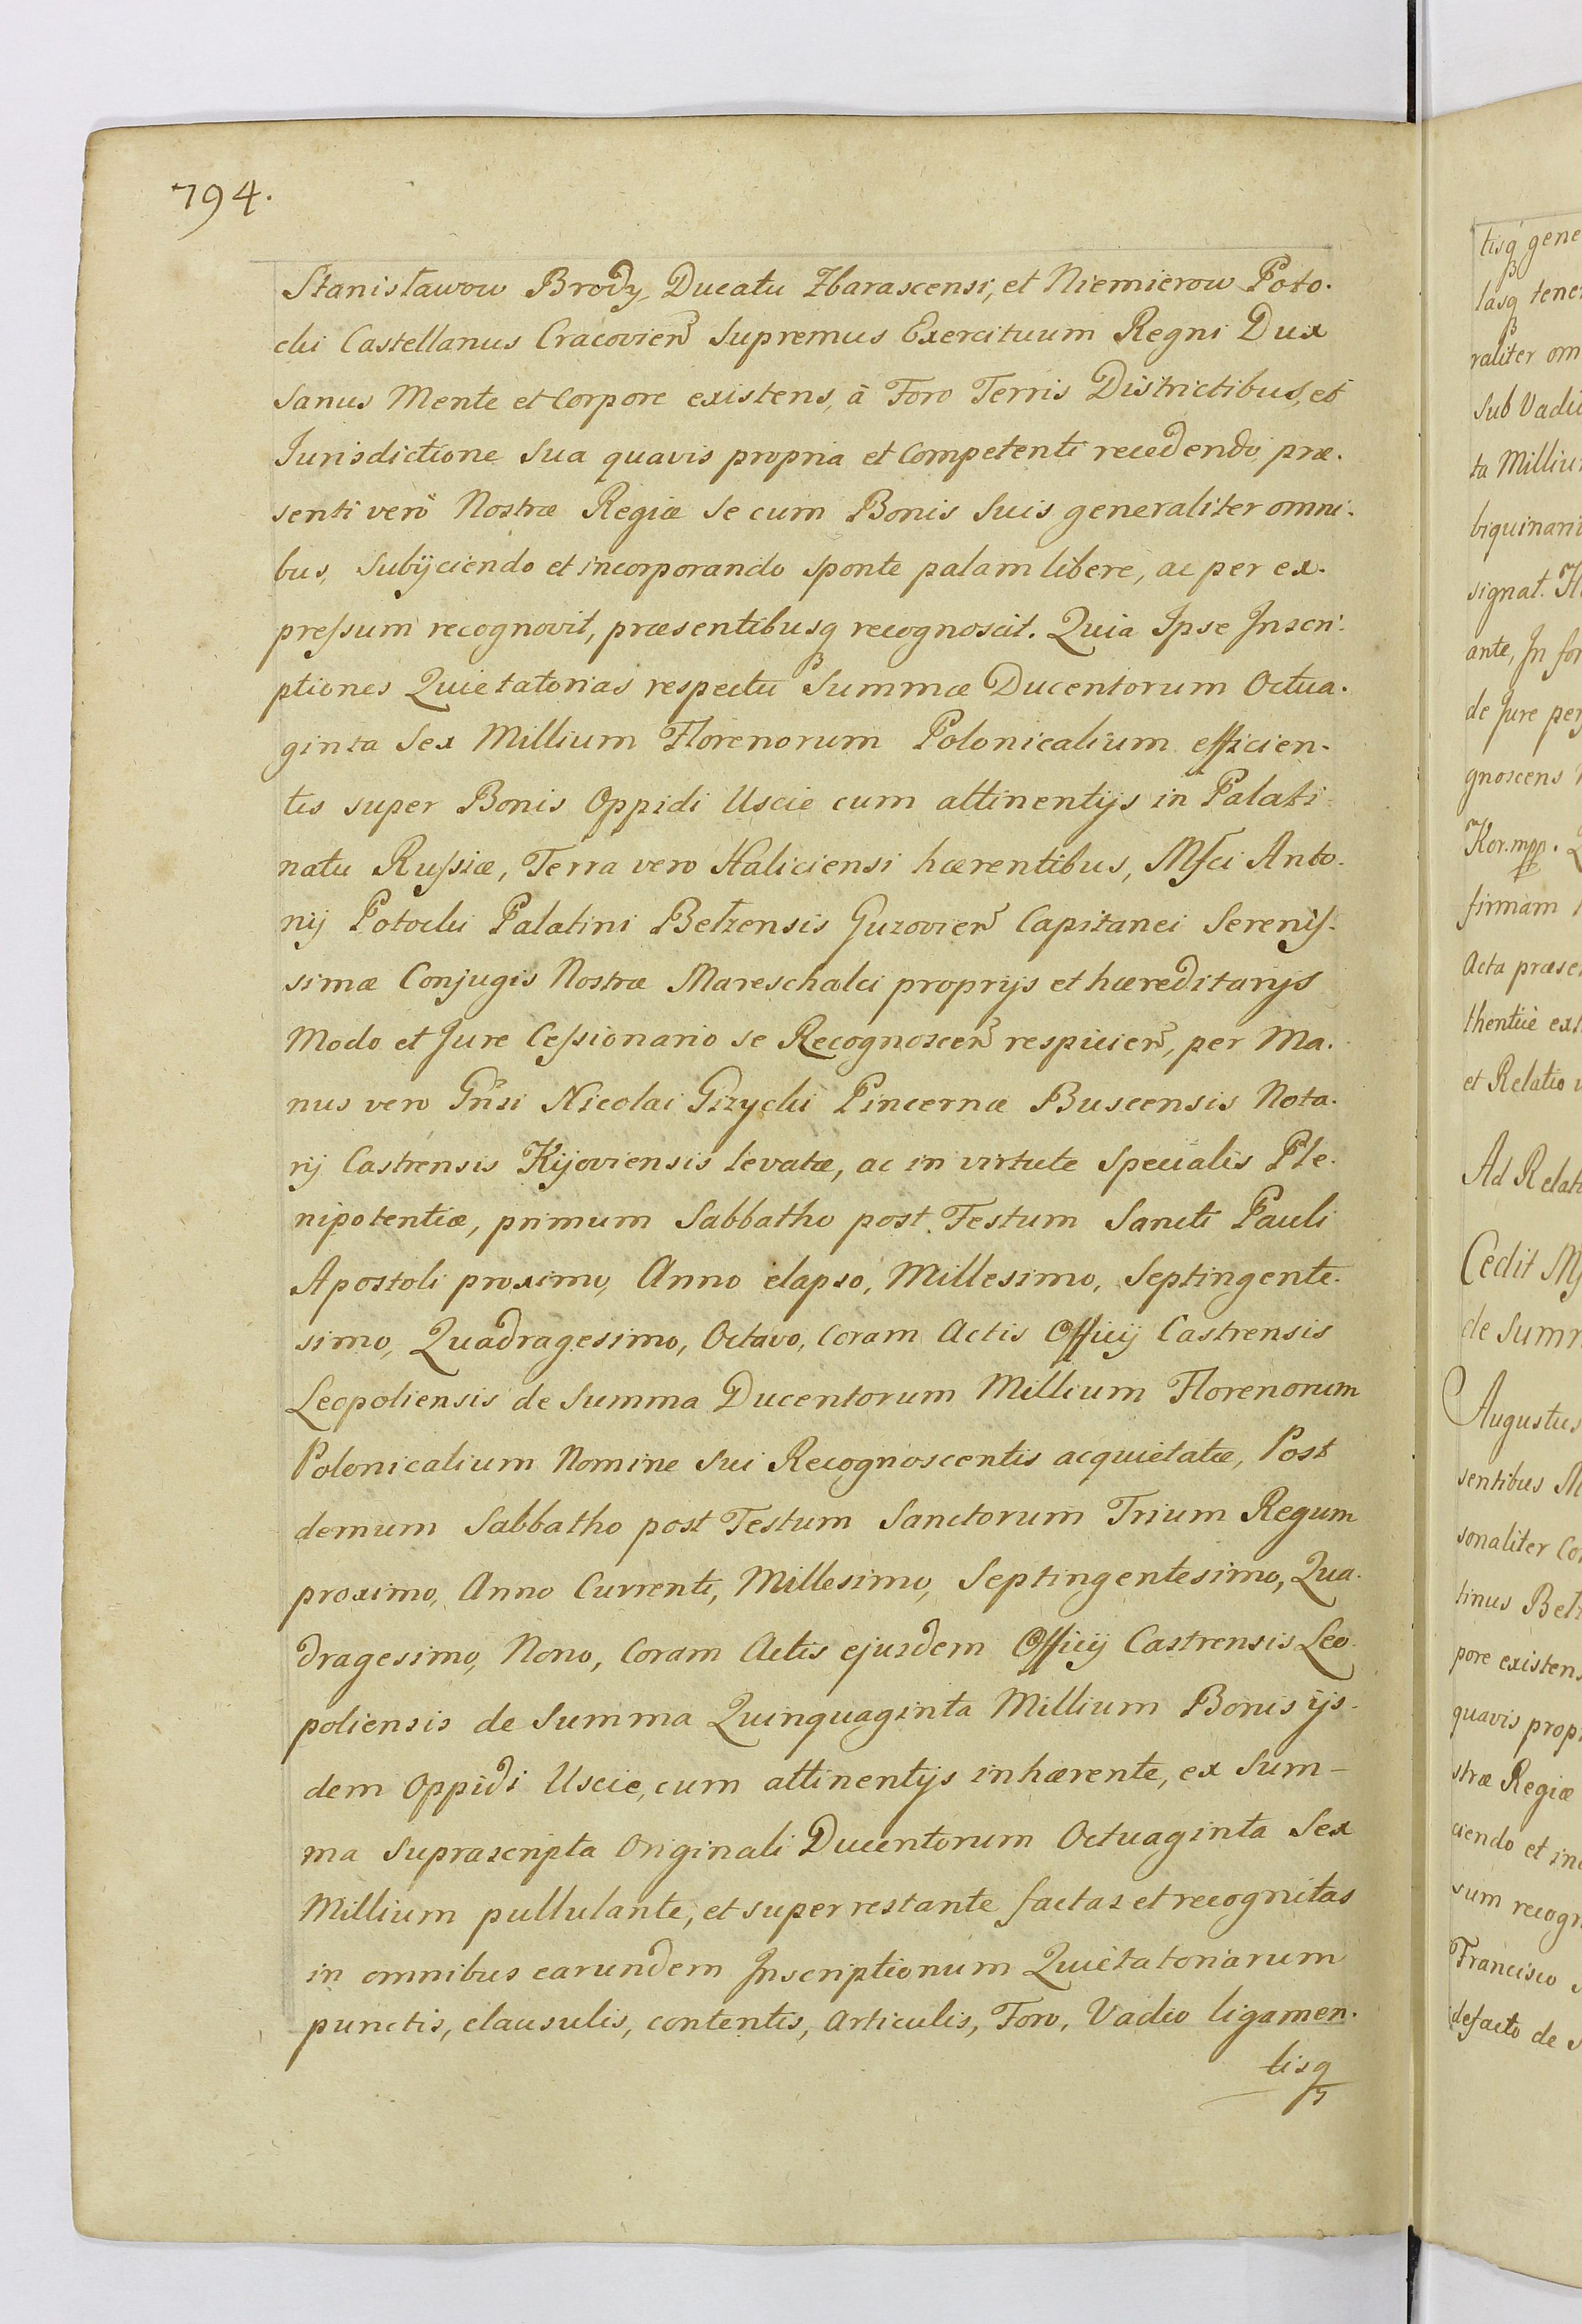 794.
Stanisławow Brody, Ducatu Zbarascensi, et Niemierow Poto.
cki Castellanus Cracovien̄ Supremus Exercituum Regni Dux
Sanus Mente et Corpore existens, à Foro Terris Districtibus, et
Jurisdictione Sua quavis propria et Competenti recedendo, præ.
senti verò Nostræ Regiæ Se cum Bonis Suis generaliter omni.
bus, Subijciendo et incorporando sponte palam libere, ac per ex.
preſsum recognovit, præsentibusq recognoscit. Quia Ipse Inscri.
ptiones Quietatorias respectu Summæ Ducentorum Octua.
ginta Sex Millium Florenorum Polonicalium efficien.
tis super Bonis Oppidi Uscie cum attinentijs in Palati
natu Ruſsiæ, Terra vero Haliciensi hærentibus, Mſci Anto.
nij Potocki Palatini Betzensis Guzovien̄ Capitanei Sereniſ.
simæ Conjugis Nostræ Mareschalci proprijs et hæreditarijs
Modo et Jure Ceſsionario se Recognoscen̄ respicien̄, per Ma.
nus vero Gn̄si Nicolai Gizycki Pincernæ Buscensis Nota.
rij Castrensis Kijoviensis levatæ, ac in virtute Specialis Ple.
nipotentiæ, primum Sabbatho post Festum Sancti Pauli
Apostoli proximo, Anno elapso, Millesimo, Septingente.
simo, Quadragesimo, Octavo, Coram Actis Officij Castrensis
Leopoliensis de Summa Ducentorum Millium Florenorum
Polonicalium Nomine Sui Recognoscentis acquietatæ, Post
demum Sabbatho post Festum Sanctorum Trium Regum
proximo, Anno Currenti, Millesimo, Septingentesimo, Qua.
dragesimo, Nono, Coram Actis ejusdem Officij Castrensis Leo.
poliensis de Summa Quinquaginta Millium Bonis ijs.
dem Oppidi Uscie, cum attinentijs inhærente, ex Sum-
ma Suprascripta Originali Ducentorum Octuaginta Sex
Millium pullulante, et super restante factas et recognitas
in omnibus earundem Inscriptionum Quietatoriarum
punctis, clausulis, contentis, Articulis, Foro, Vadio ligamen.
tisq
tisq gene
lasq tene
raliter om
Sub Vadi
ta Milliu
biquinari
signat.
ante, In for
de Jure per
gnoscens
Kor. mpp.
firmam
Acta præse
thentice ext
et Relatio
Ad Relati
Cedit
de Summ
Augustus
sentibus
sonaliter Co
tinus Bet
pore existens
quavis prop
stræ Regiæ
ciendo et in
sum recogn
Francisco
defacto de